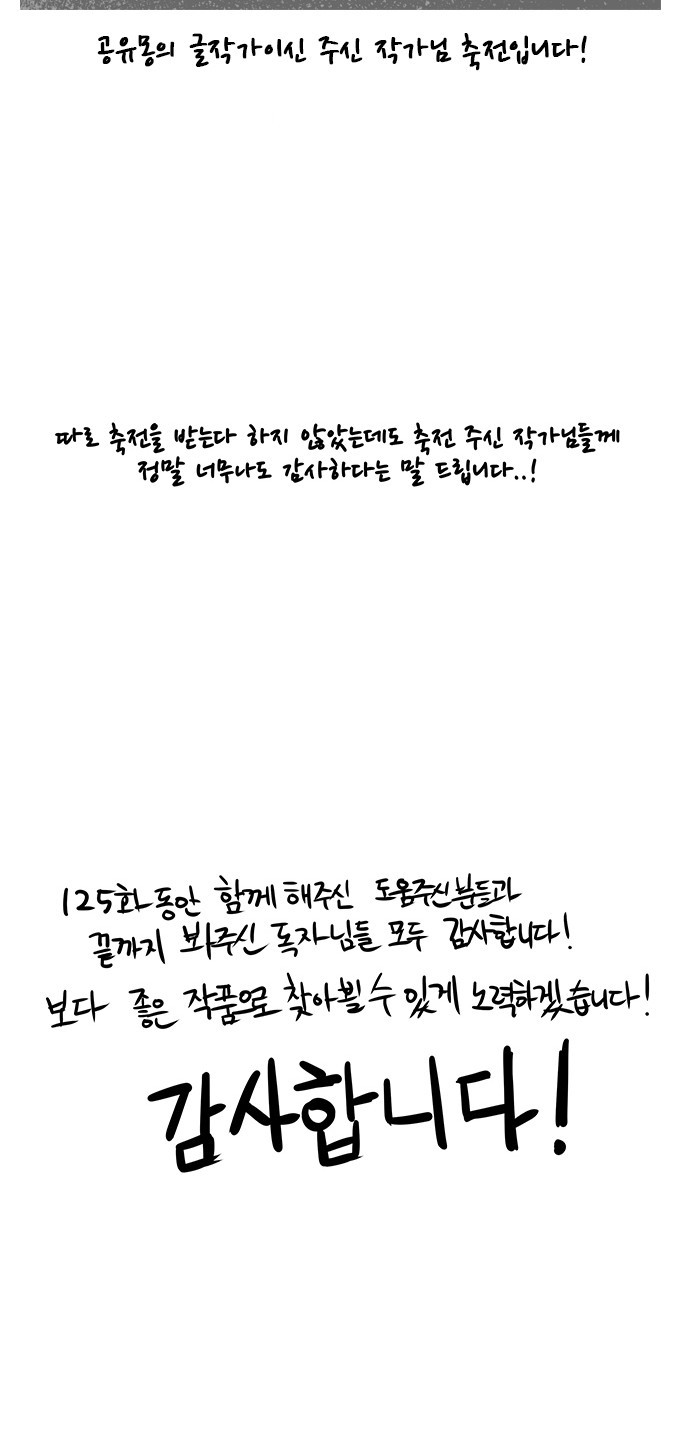 공유몽의 글작가이신 주신 작가님 축전입니다!
따로 축전을 받는다 하지 않았는데도 축전 주신 작가님들께
정말 너무나도 감사하다는 말 드립니다..!
125화동안 함께해주신 도움주신분들과
끝까지 봐주신 독자님들 모두 감사합니다!
보다 좋은 작품으로 찾아뵐 수 있게 노력하겠습니다!
감사합니다!